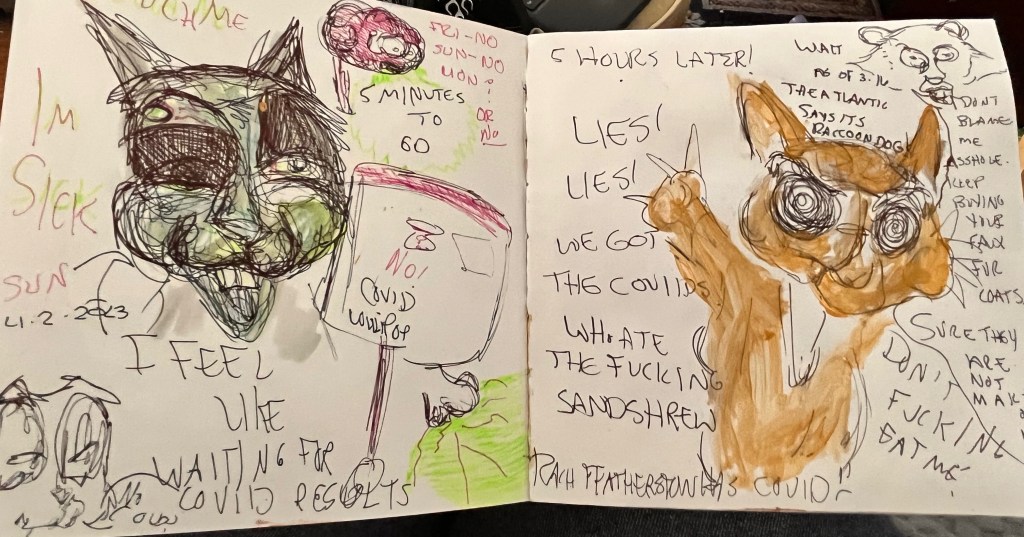 UCH ME
FRI-NO
SUN-NO
MON?
OR
NO
5 MINUTES
TO
GO
IM
SICK
SUN
4.2.2023
NO!
COVID
LOLLIPOP
I FEEL
LIKE
WAITING FOR
COVID RESULTS
5 HOURS LATER!
LIES!
LIES!
WE GOT
THE COVIIDS.
WHO ATE
THE FUCKING
SANDSHREW
HAS COVID
WAIT
AS OF 3.16
THE ATLANTIC
SAYS ITS
RACCOON DOG!
DONT
BLAME
ME
ASSHOLE.
KEEP
BUYING
YOUR
FAUX
FUR
COATS.
SURE THEY
ARE.
NOT
MAK
DON'T
FUCKING
EAT ME!